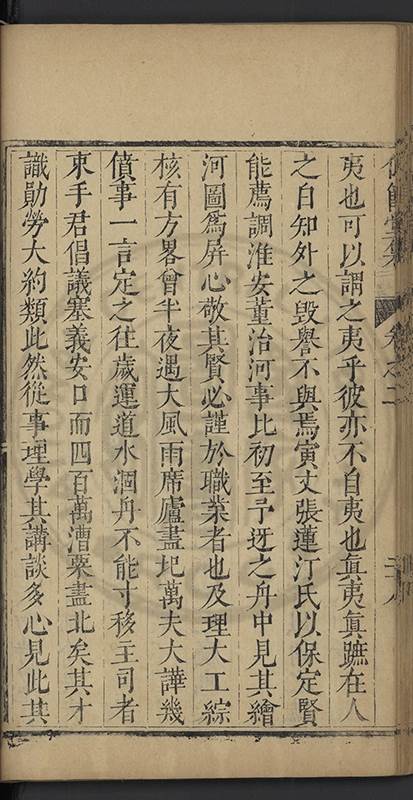 夷也可以謂之夷乎彼亦不自夷也眞夷眞蹠在人
之自知外之毀譽不與焉寅丈張蓮汀氏以保定賢
能薦調淮安董治河事比初至予迓之舟中見其繪
河圖爲屏心敬其賢必謹於職業者也及理大工綜
核有方畧曾半夜遇大風雨席廬盡圮萬夫大譁幾
僨事一言定之往歲運道水涸舟不能寸移主司者
束手君倡議塞義安口而四百萬漕粟盡北矣其才
識勛勞大約類此然從事理學其講談多心見此其